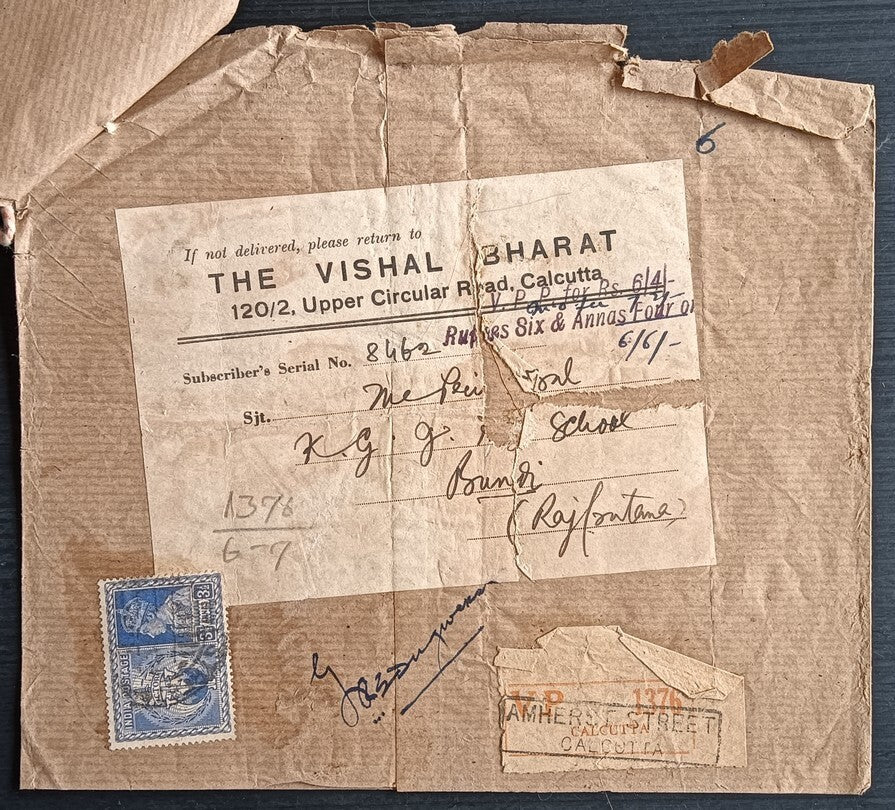 6
If not delivered, please return to
THE VISHAL BHARAT
120/2, Upper Circular Road, Calcutta
V. P. P. for Rs. 6/4/-
Rupees Six & Annas Four
6/6/-
Subscriber's Serial No. 8462
Sjt.
K. G. G. School
Bundi
(Rajputana)
1376
6-7
3½ ANNAS
INDIA POSTAGE
VP 1376
AMHERST STREET
CALCUTTA
CALCUTTA